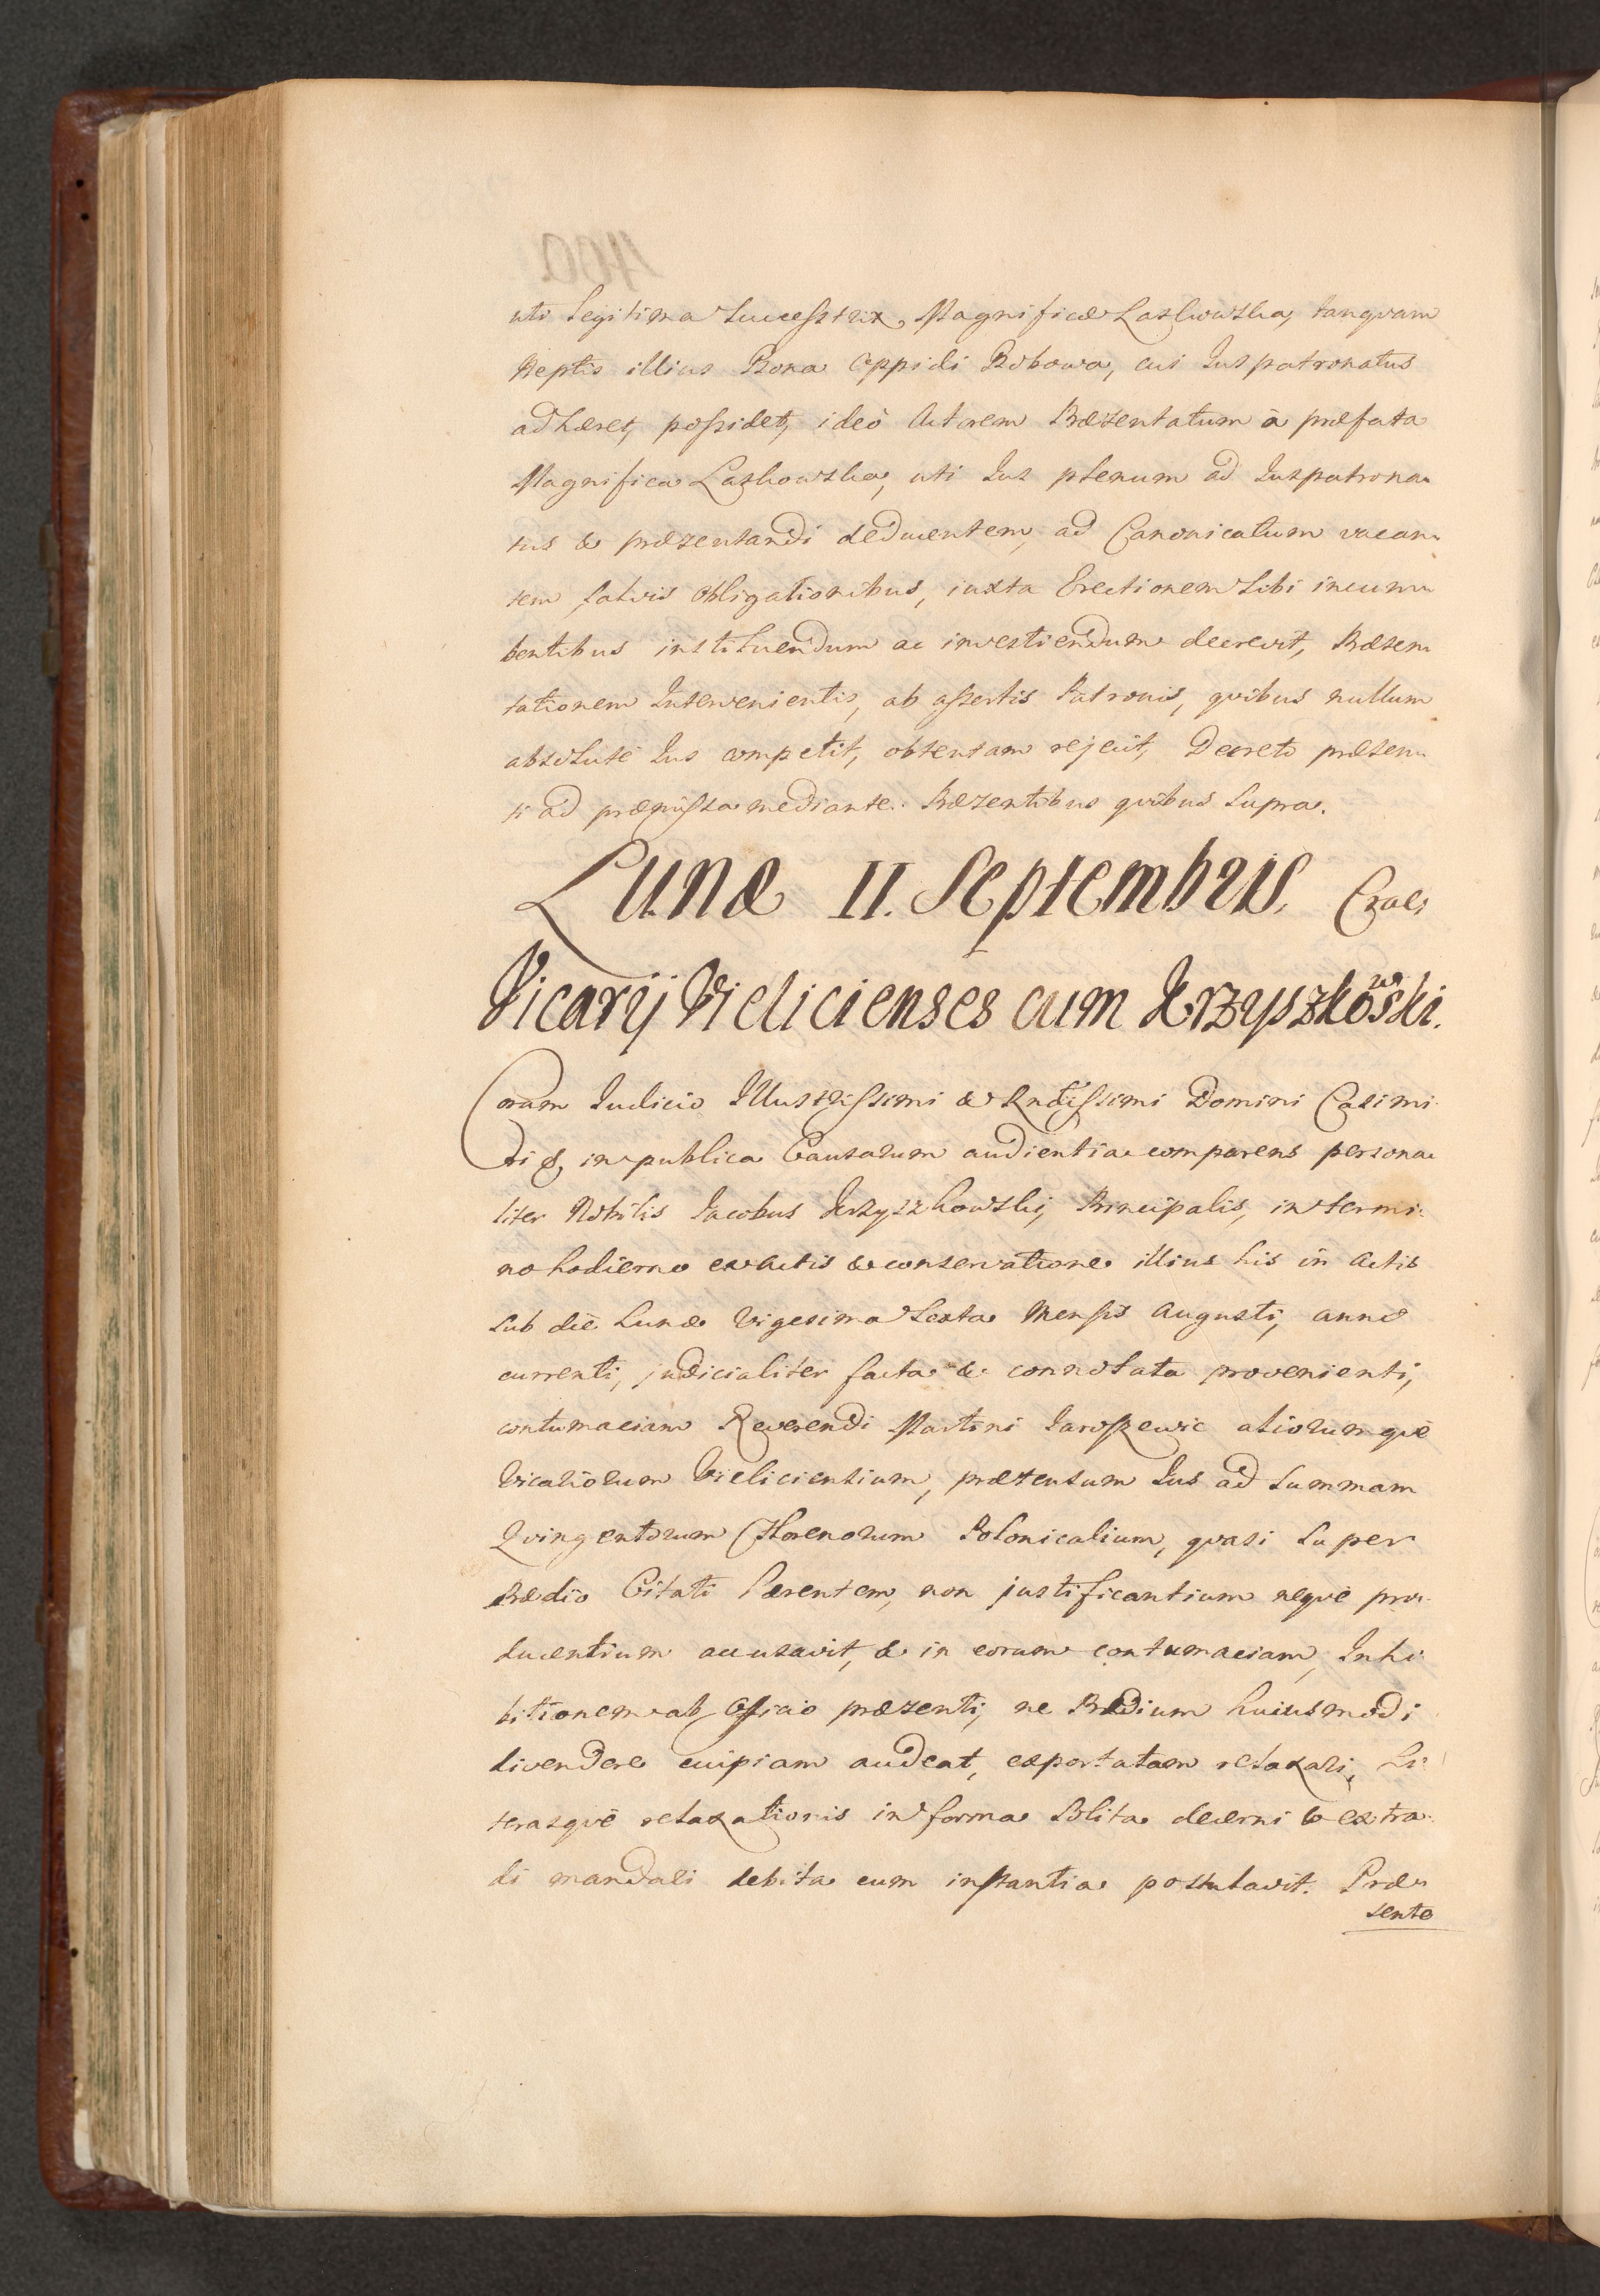 uti Legitima Successtrix, Magnificæ Laskowska, tanqvam
Neptis illius Bona Oppidi Bobowa, cui Juspatronatus
adhæret, possidet, ideò Actorem Præzentatum à præfata
Magnifica Laskowska, uti Jus plenum ad Juspatrona-
tus & præzentandi deducentem, ad Canonicatum vacan-
tem salvis Obligationibus, iuxta Erectionem Sibi incum-
bentibus instituendum ac investiendum decrevit, Præsen-
tationem Intervenientis, ab assertis Patronis, qvibus nullum
absolutè Jus competit, obtentam rejecit, Decreto præsen-
ti ad præmissa mediante. Præzentibus qvibus Supra.
Lunæ 11. Septembris,
Vicarij Vielicienses cum Krzyszkowski.
Coram Judicio Illustrissimi & Rndissimi Domini Casimi-
ri &, in publica Causarum audientia comparens persona-
liter Nobilis Jacobus Krzyszkowski, Principalis, in termi-
no hodierno ex Actis & conservatione illius his in Actis
Sub die Lunæ Vigesima Sexta Mensis Augusti, anno
currenti, judicialiter facta & connotata provenienti,
contumaciam Reverendi Martini Jaroszewic aliorumqvè
Vicariorum Vieliciensium, prætensum Jus ad Summam
Qvingentorum Florenorum Polonicalium, qvasi Super
Prædio Citati hærentem, non justificantium neqvè pro-
ducentium accusavit, & in eorum contumaciam, Inhi-
bitionem ab Officio præzenti, ne Prædium huiusmodi
divendere cuipiam audeat, exportatam relaxari, Li-
terasqvè relaxationis in forma Solita decerni & extra-
di mandari debita cum instantia postulavit. Præ-
sente